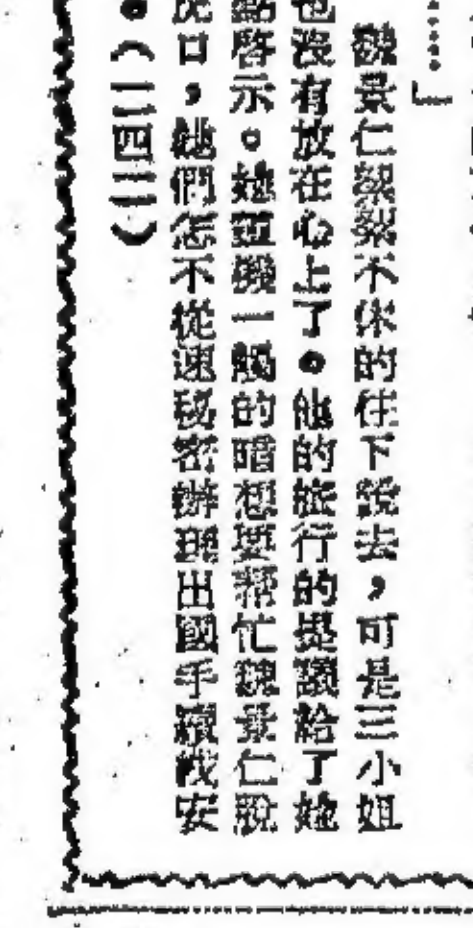 ……」
魏景仁絮絮不休的往下說去，可是三小姐
也沒有放在心上了。他的旅行的提議給了她
點啓示。她靈機一觸的暗想要幫忙魏景仁脫
虎口，她們怎不從速秘密辦理出國手續戲安
。（一四二）